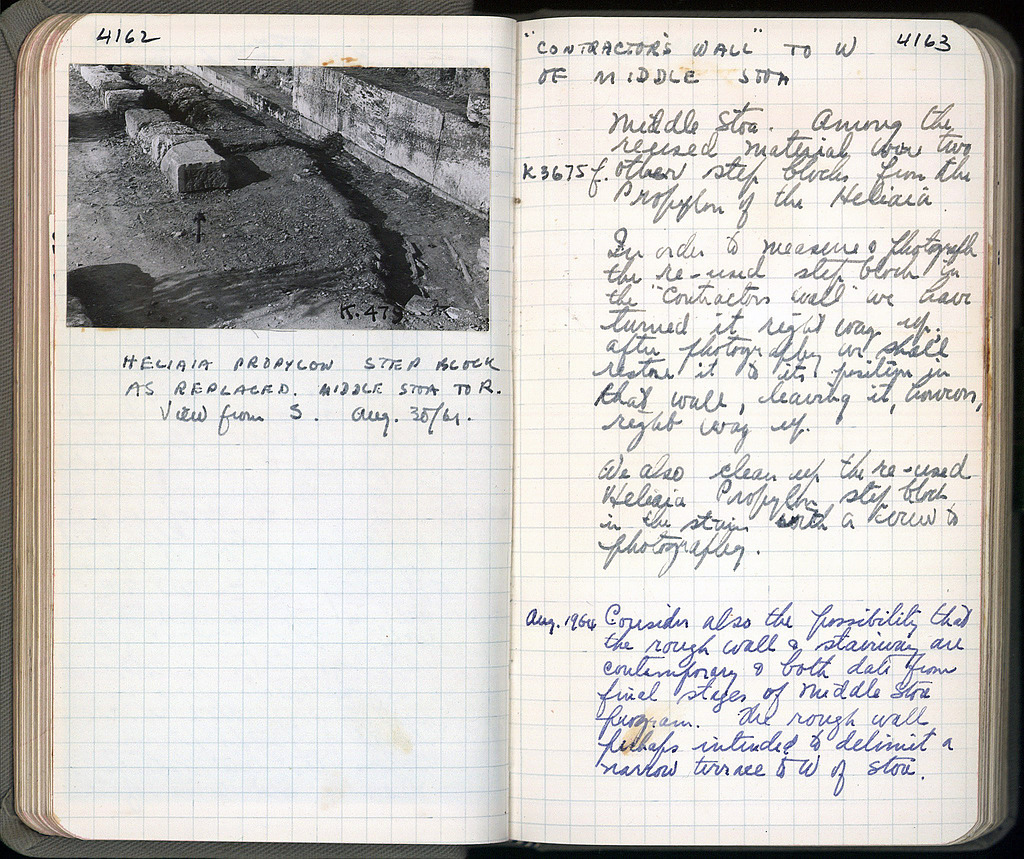 4162
K. 479
HELIAIA PROPYLON STEP BLOCK
AS REPLACED. MIDDLE STOA TO R.
View from S. Aug. 30/61.
"CONTRACTOR'S WALL" TO W 4163
OF MIDDLE STOA
Middle Stoa. Among the
reused material were two
K3675 f. other step blocks from the
Propylon of the Heliaia
In order to measure & photograph
the re-used step block in
the "Contractors wall" we have
turned it right way up.
After photography we shall
restore it to its position in
that wall, leaving it, however,
right way up.
We also clean up the re-used
Heliaia Propylon step block
in the stairs with a view to
photography.
Aug. 1964 Consider also the possibility that
the rough wall & stairway are
contemporary & both date from
final stages of Middle Stoa
program. The rough wall
perhaps intended to delimit a
narrow terrace to W of Stoa.